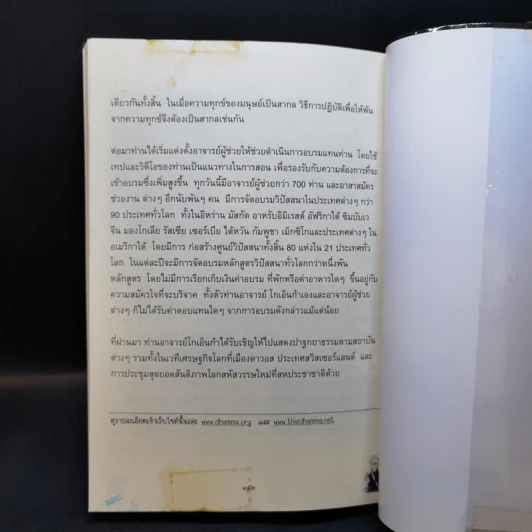 เดียวกันทั้งสิ้น ในเมื่อความทุกข์ของมนุษย์เป็นสากล วิธีการปฏิบัติเพื่อให้พ้น
จากความทุกข์จึงต้องเป็นสากลเช่นกัน
ต่อมาท่านได้เริ่มแต่งตั้งอาจารย์ผู้ช่วยให้ช่วยดำเนินการอบรมแทนท่าน โดยใช้
เทปและวิดีโอของท่านเป็นแนวทางในการสอน เพื่อรองรับกับความต้องการที่จะ
เข้าอบรมซึ่งเพิ่มสูงขึ้น ทุกวันนี้มีอาจารย์ผู้ช่วยกว่า 700 ท่าน และอาสาสมัคร
ช่วยงาน ต่างๆ อีกนับพันๆ คน มีการจัดอบรมวิปัสสนาในประเทศต่างๆ กว่า
90 ประเทศทั่วโลก ทั้งในอิหร่าน มัสกัต อาหรับอิมิเรตส์ อัฟริกาใต้ ซิมบับเว
จีน มองโกเลีย รัสเซีย เซอร์เบีย ไต้หวัน กัมพูชา เม็กซิโกและประเทศต่างๆ ใน
อเมริกาใต้ โดยมีการ ก่อสร้างศูนย์วิปัสสนาทั้งสิ้น 80 แห่งใน 21 ประเทศทั่ว
โลก ในแต่ละปีจะมีการจัดอบรมหลักสูตรวิปัสสนาทั่วโลกกว่าหนึ่งพัน
หลักสูตร โดยไม่มีการเรียกเก็บเงินค่าอบรม ที่พักหรือค่าอาหารใดๆ ขึ้นอยู่กับ
ความสมัครใจที่จะบริจาค ทั้งตัวท่านอาจารย์ โกเอ็นก้าเองและอาจารย์ผู้ช่วย
ต่างๆ ก็ไม่ได้รับค่าตอบแทนใดๆ จากการอบรมดังกล่าวแม้แต่น้อย
ที่ผ่านมา ท่านอาจารย์โกเอ็นก้าได้รับเชิญให้ไปแสดงปาฐกถาธรรมตามสถาบัน
ต่างๆ รวมทั้งในเวทีเศรษฐกิจโลกที่เมืองดาวอส ประเทศสวิสเซอร์แลนด์ และ
การประชุมสุดยอดสันติภาพโลกสหัสวรรษใหม่ที่สหประชาชาติด้วย
ดูรายละเอียดเข้าเว็บไซต์นี้นะคะ www.dhamma.org และ www.thaidhamma.net